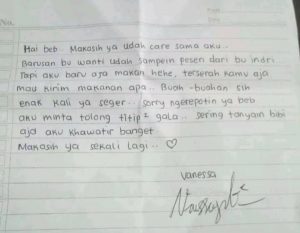 No.
Date
Hai beb. Makasih ya udah care sama aku..
Barusan bu wanti udah sampein pesen dari bu indri.
Tapi aku baru aja makan hehe, terserah kamu aja
mau kirim makanan apa.. Buah-buahan sih
enak kali ya seger.. sorry ngerepotin ya beb
aku minta tolong titip² gala.. sering tanyain bibi
aja aku khawatir banget
Makasih ya sekali lagi.. ♡
Vanessa